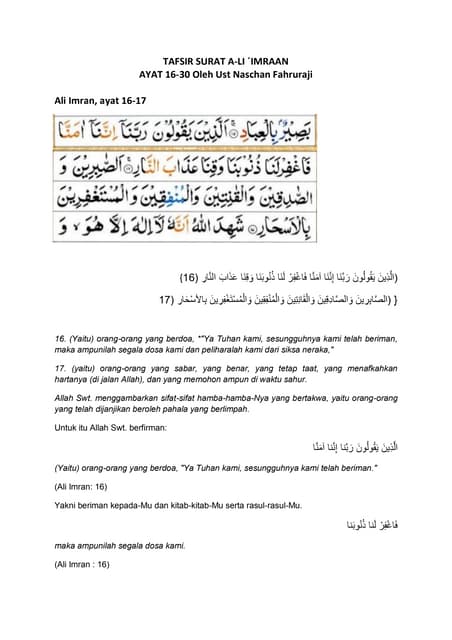 TAFSIR SURAT A-LI `IMRAAN
AYAT 16-30 Oleh Ust Naschan Fahruraji
Ali Imran, ayat 16-17
بَصِيْرٌۢ بِالْعِبَادِۚ اَلَّذِيْنَ يَقُوْلُوْنَ رَبَّنَآ اِنَّنَآ اٰمَنَّا
فَاغْفِرْ لَنَا ذُنُوْبَنَا وَقِنَا عَذَابَ النَّارِۚ اَلصّٰبِرِيْنَ وَ
الصّٰدِقِيْنَ وَالْقٰنِتِيْنَ وَالْمُنْفِقِيْنَ وَالْمُسْتَغْفِرِيْنَ
بِالْاَسْحَارِ شَهِدَ اللّٰهُ اَنَّهٗ لَآ اِلٰهَ اِلَّا هُوَۙ وَ
(الَّذِينَ يَقُولُونَ رَبَّنَا إِنَّنَا آمَنَّا فَاغْفِرْ لَنَا ذُنُوبَنَا وَقِنَا عَذَابَ النَّارِ (16)
{ (الصَّابِرِينَ وَالصَّادِقِينَ وَالْقَانِتِينَ وَالْمُنْفِقِينَ وَالْمُسْتَغْفِرِينَ بِالأسْحَارِ (17
16. (Yaitu) orang-orang yang berdoa, "“Ya Tuhan kami, sesungguhnya kami telah beriman,
maka ampunilah segala dosa kami dan peliharalah kami dari siksa neraka,"
17. (yaitu) orang-orang yang sabar, yang benar, yang tetap taat, yang menafkahkan
hartanya (di jalan Allah), dan yang memohon ampun di waktu sahur.
Allah Swt. menggambarkan sifat-sifat hamba-hamba-Nya yang bertakwa, yaitu orang-orang
yang telah dijanjikan beroleh pahala yang berlimpah.
Untuk itu Allah Swt. berfirman:
الَّذِينَ يَقُولُونَ رَبَّنا إِنَّنا آمَنَّا
(Yaitu) orang-orang yang berdoa, "Ya Tuhan kami, sesungguhnya kami telah beriman."
(Ali Imran: 16)
Yakni beriman kepada-Mu dan kitab-kitab-Mu serta rasul-rasul-Mu.
فَاغْفِرْ لَنا ذُنُوبَنا
maka ampunilah segala dosa kami.
(Ali Imran : 16)